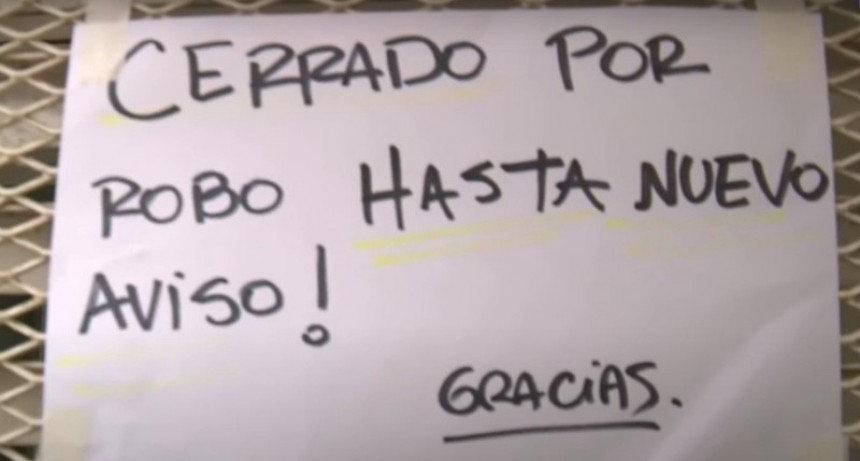 CERRADO POR
ROBO HASTA NUEVO
AViSO!
GRACiAS.